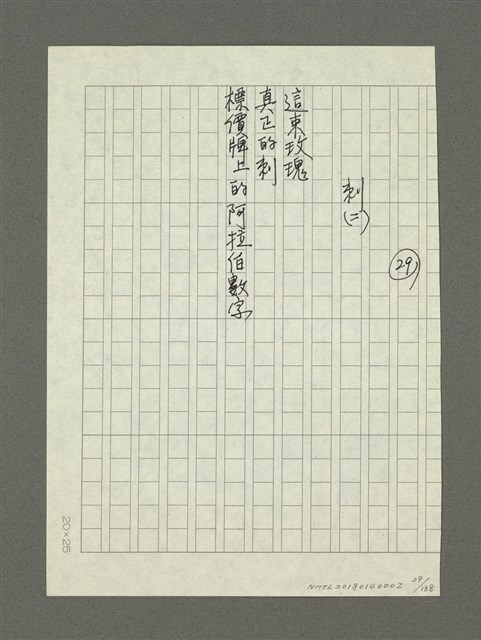 29
刺(二)
這束玫瑰
真正的刺
標價牌上的阿拉伯數字
20×25
NMTL20180140002
29/138